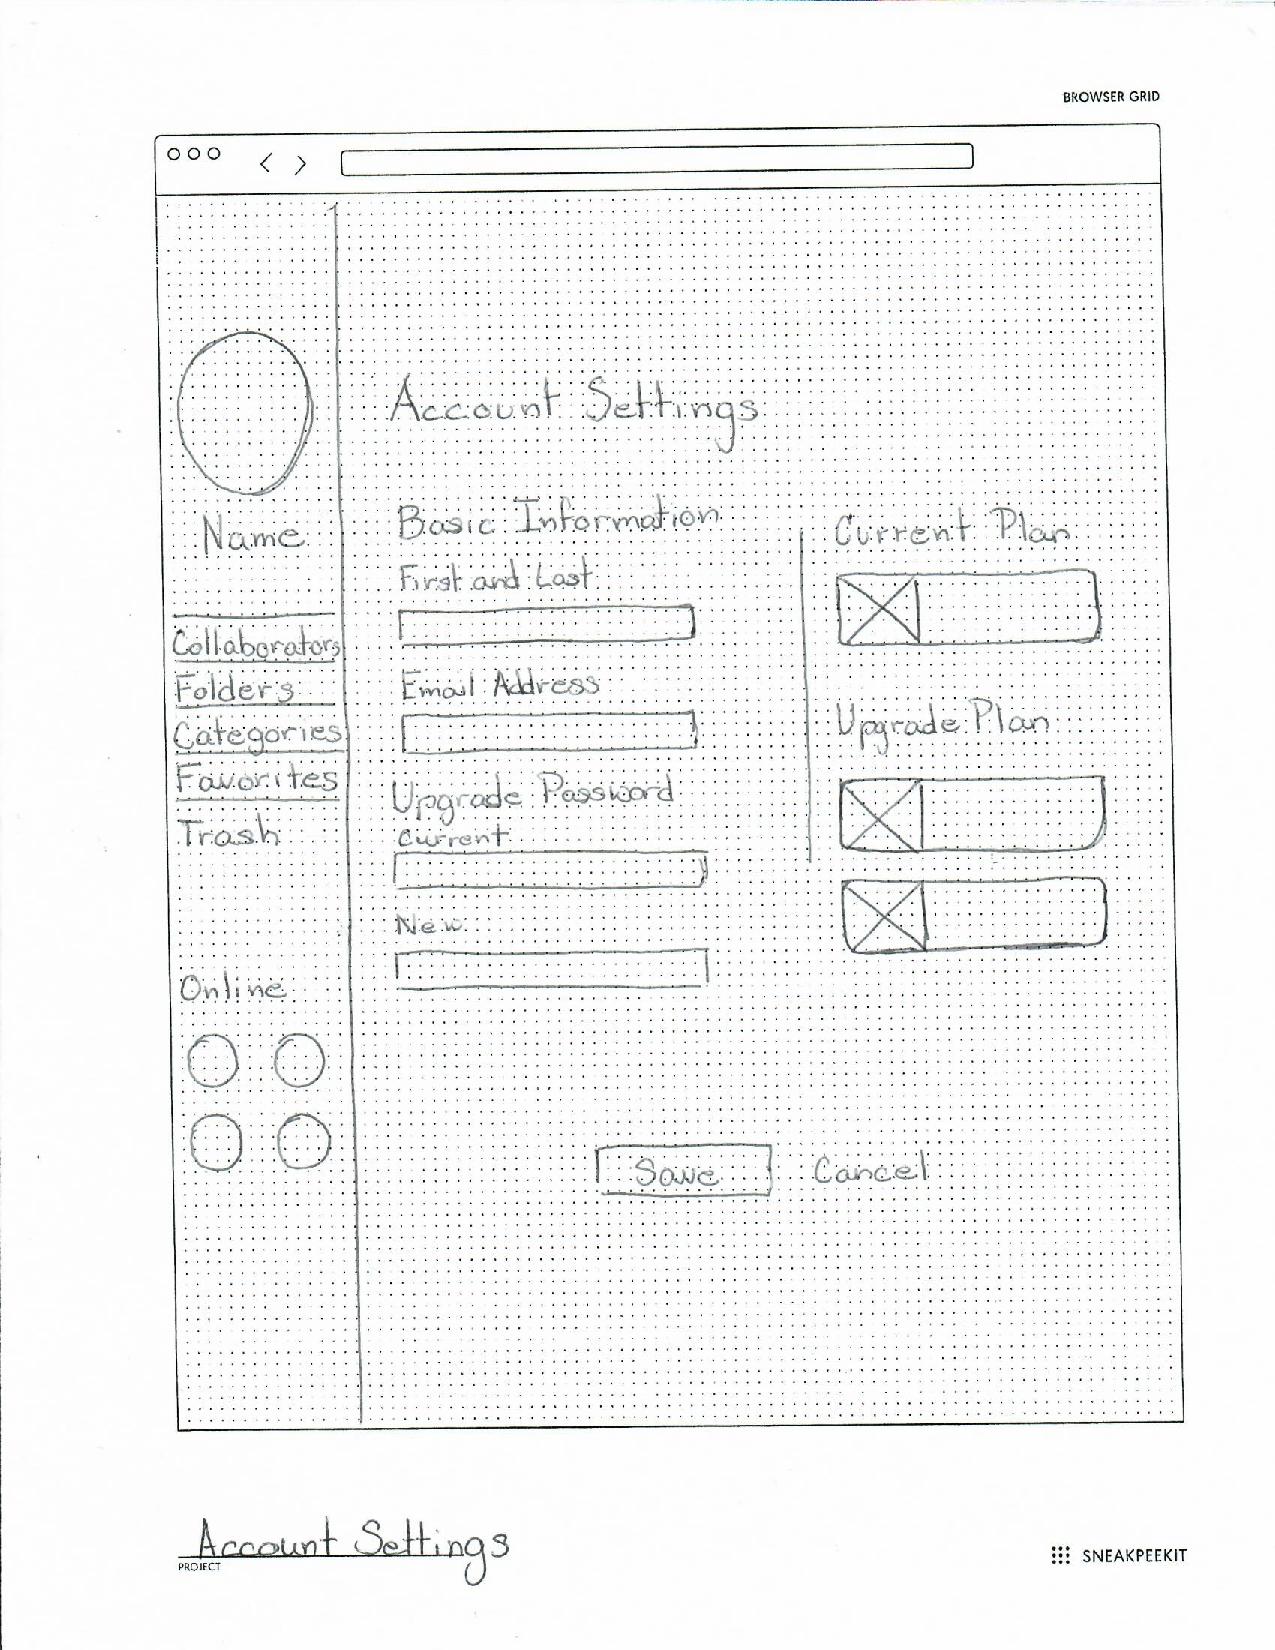 BROWSER GRID
Account Settings
Name
Collaborators
Folders
Categories
Favorites
Trash
Online
Basic Information
First and Last
Email Address
Upgrade Password
Current
New
Current Plan
Upgrade Plan
Save
Cancel
Account Settings
PROJECT
SNEAKPEEKIT